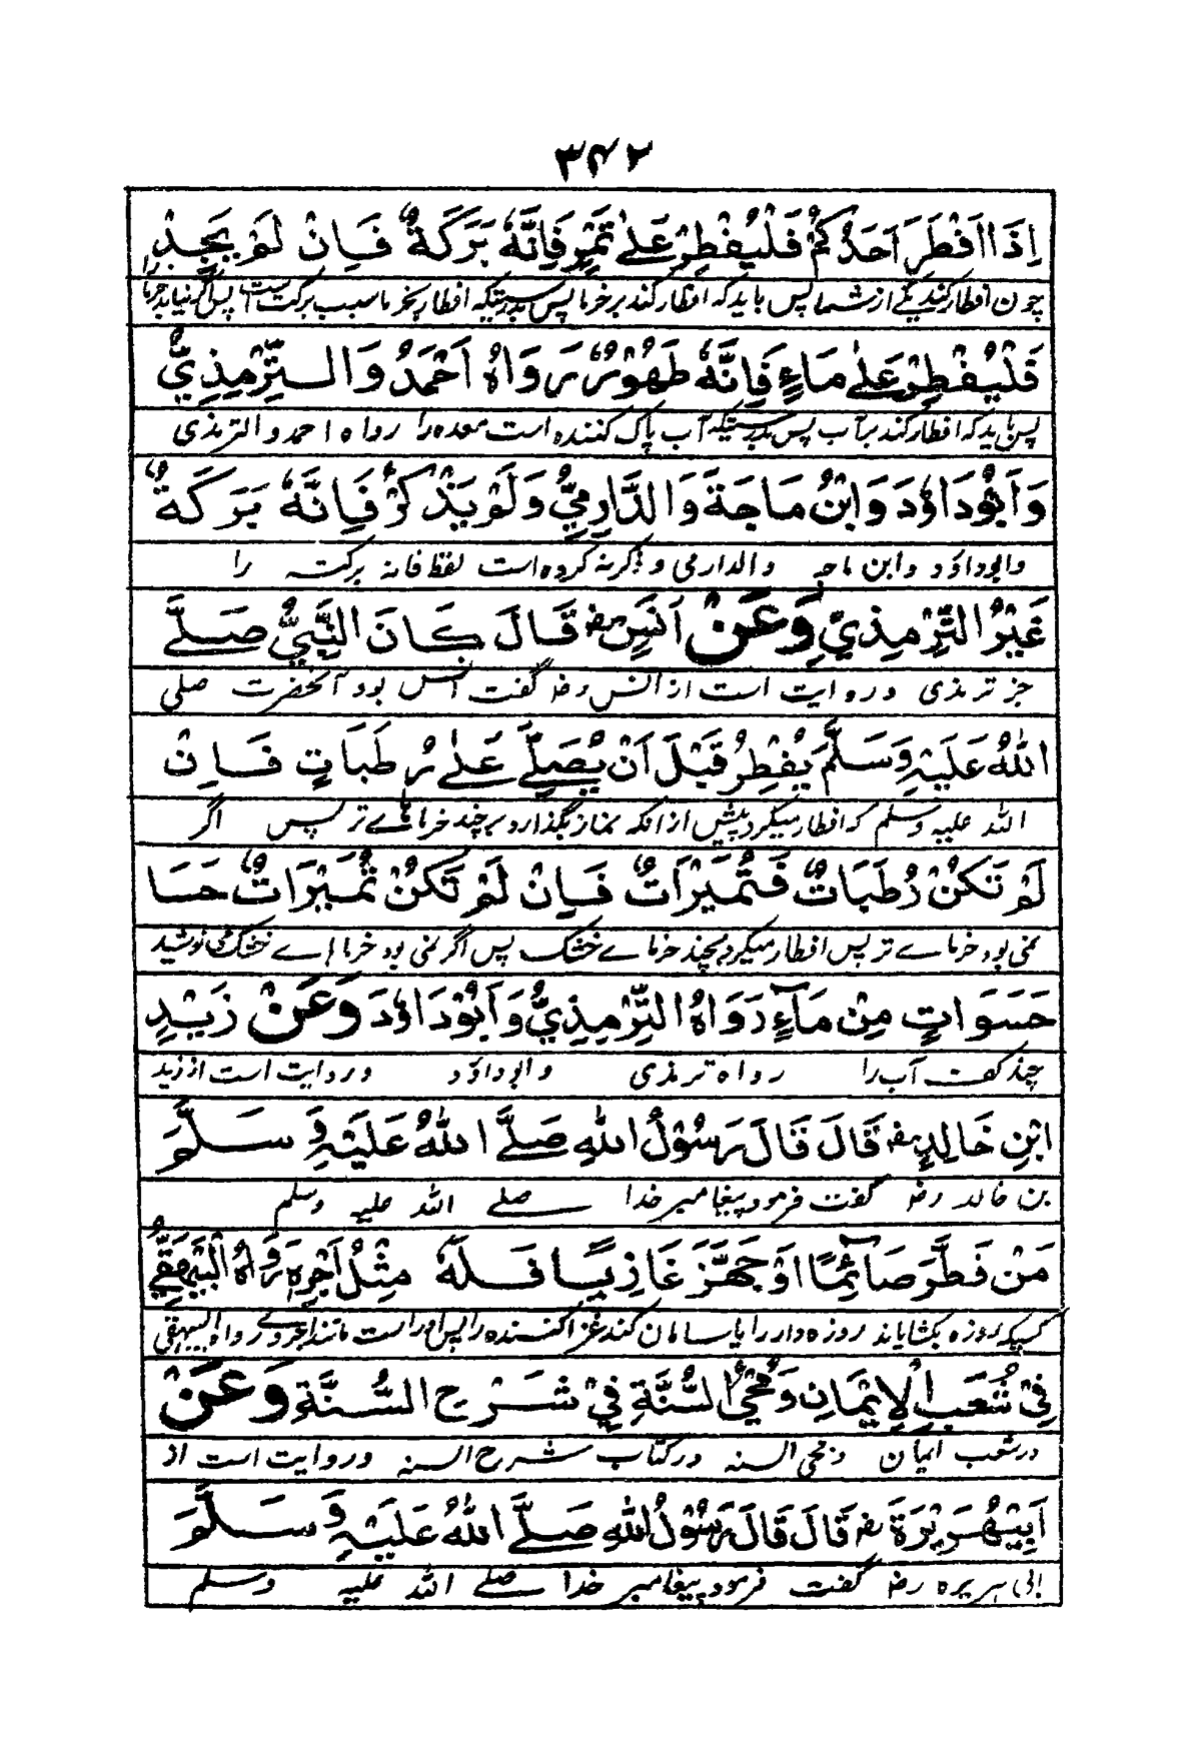 ۳۴۲
اِذَا اَفْطَرَ اَحَدُكُمْ فَلْيُفْطِرْ عَلٰى تَمْرٍ فَاِنَّهٗ بَرَكَةٌ فَاِنْ لَمْ يَجِدْ
چون افطار کند یکے از شما پس باید که افطار کند بر خرما پس بدرستیکه افطار بخرما سبب برکت است پس اگر نیابد خرما را
فَلْيُفْطِرْ عَلٰى مَاءٍ فَاِنَّهٗ طَهُوْرٌ رَوَاهُ اَحْمَدُ وَالتِّرْمِذِيُّ
پس باید که افطار کند بر آب پس بدرستیکه آب پاک کننده است معده را رواه احمد و الترمذی
وَاَبُوْدَاوٗدَ وَابْنُ مَاجَةَ وَالدَّارِمِيُّ وَلَمْ يَذْكُرْ فَاِنَّهٗ بَرَكَةٌ
و ابوداؤد و ابن ماجه والدارمی و ذکر نه کرده است لفظ فانه برکته را
غَيْرُ التِّرْمِذِيِّ وَعَنْ اَنَسٍ رضہ قَالَ كَانَ النَّبِيُّ صَلَّے
جز ترمذی و روایت است از انس رضہ گفت انس بود آنحضرت صلی
اللهُ عَلَيْهِ وَسَلَّمَ يُفْطِرُ قَبْلَ اَنْ يُصَلِّے عَلٰى رُطَبَاتٍ فَاِنْ
الله علیه وسلم که افطار میکرد پیش ازانکه نماز بگذارد بر چند خرماہاے تر پس اگر
لَمْ تَكُنْ رُطَبَاتٌ فَتُمَيْرَاتٌ فَاِنْ لَمْ تَكُنْ تُمَيْرَاتٌ حَسَا
نمی بود خرماے تر پس افطار میکرد بچند خرماے خشک پس اگر نمی بود خرماہاے خشک می نوشید
حَسَوَاتٍ مِنْ مَآءٍ رَوَاهُ التِّرْمِذِيُّ وَاَبُوْدَاوٗدَ وَعَنْ زَيْدِ
چند کف آب را رواه ترمذی و ابوداؤد و روایت است از زید
ابْنِ خَالِدٍ رضہ قَالَ قَالَ رَسُوْلُ اللهِ صَلَّے اللهُ عَلَيْهِ وَسَلَّمَ
بن خالد رضہ گفت فرمود پیغامبر خدا صلے الله علیه وسلم
مَنْ فَطَّرَ صَآئِمًا اَوْ جَهَّزَ غَازِيًا فَلَهٗ مِثْلُ اَجْرِهٖ رَوَاهُ الْبَيْهَقِيُّ
کسیکه روزه بکشایاند روزه دار را یا سامان کند غزا کننده را پس او راست مانند اجر وے رواه البیهقی
فِيْ شُعَبِ الْاِيْمَانِ وَمُحْيِ السُّنَّةِ فِيْ شَرْحِ السُّنَّةِ وَعَنْ
در شعب ایمان و محی السنه در کتاب شرح السنه و روایت است از
اَبِيْ هُرَيْرَةَ رضہ قَالَ قَالَ رَسُوْلُ اللهِ صَلَّے اللهُ عَلَيْهِ وَسَلَّمَ
ابی ہریره رضہ گفت فرمود پیغامبر خدا صلے الله علیه وسلم